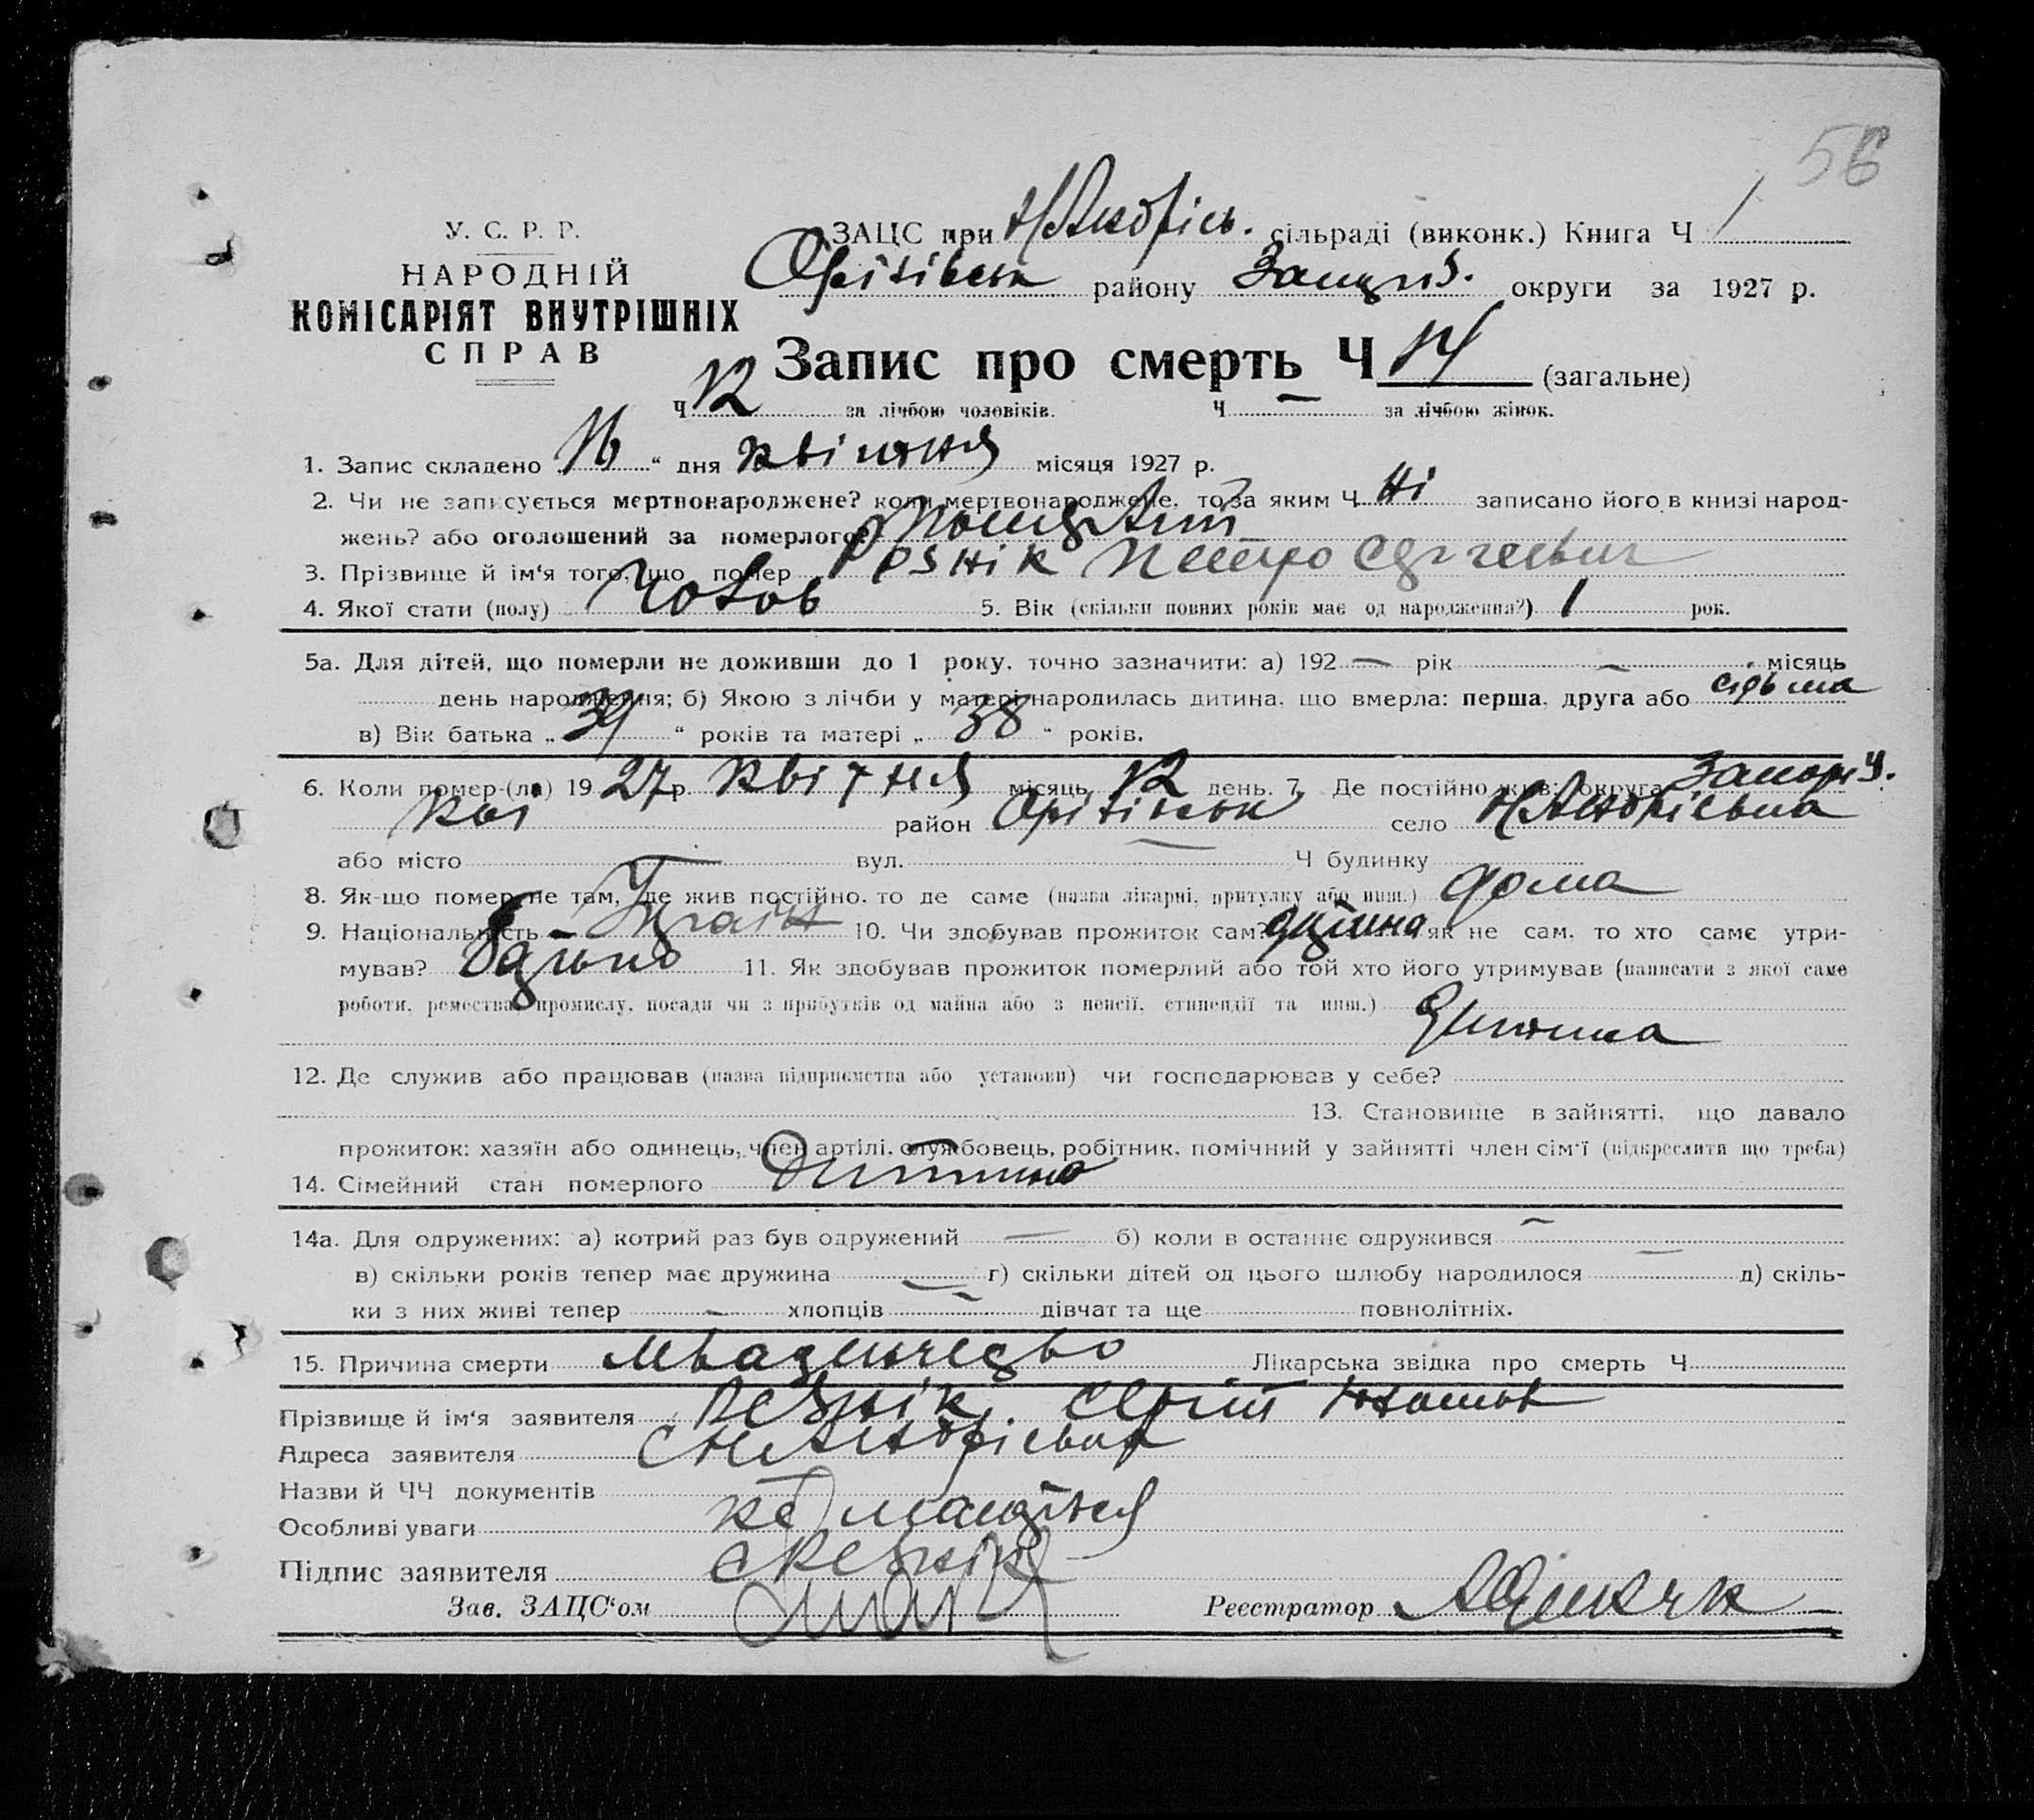 56
У. С. Р. Р.
НАРОДНІЙ
КОМІСАРІЯТ ВНУТРІШНІХ
СПРАВ
ЗАЦС при сільраді (виконк.) Книга Ч 1
Оріхівськ району округи за 1927 р.
Запис про смерть Ч 14 (загальне)
Ч 12 за лічбою чоловіків. Ч — за лічбою жінок.
1. Запис складено 16 “ дня квітня місяця 1927 р.
2. Чи не записується мертвонароджене? коли мертвонароджене, то за яким Ч Ні записано його в книзі народ-
жень? або оголошений за померлого?
3. Прізвище й ім'я того, що помер Рєзнік Петро Сергеевич
4. Якої стати (полу) Чолов 5. Вік (скільки повних років має од народження?) 1 рок.
5а. Для дітей, що померли не доживши до 1 року, точно зазначити: а) 192 — рік — місяць
день народження; б) Якою з лічби у матері народилась дитина, що вмерла: перша, друга або сідьма
в) Вік батька „ 39 “ років та матері „ 38 “ років.
6. Коли помер-(ла) 19 27 р. квітня місяць 12 день. 7. Де постійно жив: округа
район Оріхівськ село
або місто — вул. — Ч будинку
8. Як-що помер не там, де жив постійно, то де саме (назва лікарні, притулку або инш.) дома
9. Національність Україн 10. Чи здобував прожиток сам? дитина як не сам, то хто саме утри-
мував? Батько 11. Як здобував прожиток померлий або той хто його утримував (написати з якої саме
роботи, ремества, промислу, посади чи з прибутків од майна або з пенсії, стипендії та инш.)
Дитина
12. Де служив або працював (назва підприємства або установи) чи господарював у себе?
13. Становище в зайнятті, що давало
прожиток: хазяїн або одинець, член артілі, службовець, робітник, помічний у зайнятті член сім'ї (підкреслити що треба)
14. Сімейний стан померлого Дитина
14а. Для одружених: а) котрий раз був одружений — б) коли в останнє одружився —
в) скільки років тепер має дружина — г) скільки дітей од цього шлюбу народилося — д) скіль-
ки з них живі тепер — хлопців — дівчат та ще повнолітніх.
15. Причина смерти Лікарська звідка про смерть Ч
Прізвище й ім'я заявителя Резнік Сергій
Адреса заявителя
Назви й ЧЧ документів
Особливі уваги
Підпис заявителя С Резнік
Зав. ЗАЦС'ом Реєстратор